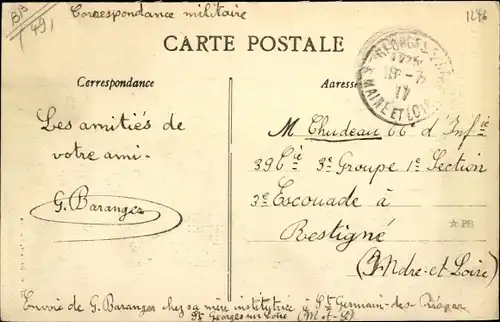 BB
(49)
Correspondance militaire
1246
CARTE POSTALE
Correspondance
Adresse
MAINE ET LOIRE
Les amitiés de
votre ami.
G. Baranger
M Chudeau 66e d'Infie
39 Cie 3e Groupe 1e Section
3e Escouade à
Restigné
(Indre-et-Loire)
PB
Envoie de G. Baranger chez sa mère institutrice à St Germain-des-Prés par
St Georges sur Loire (M-et-L)